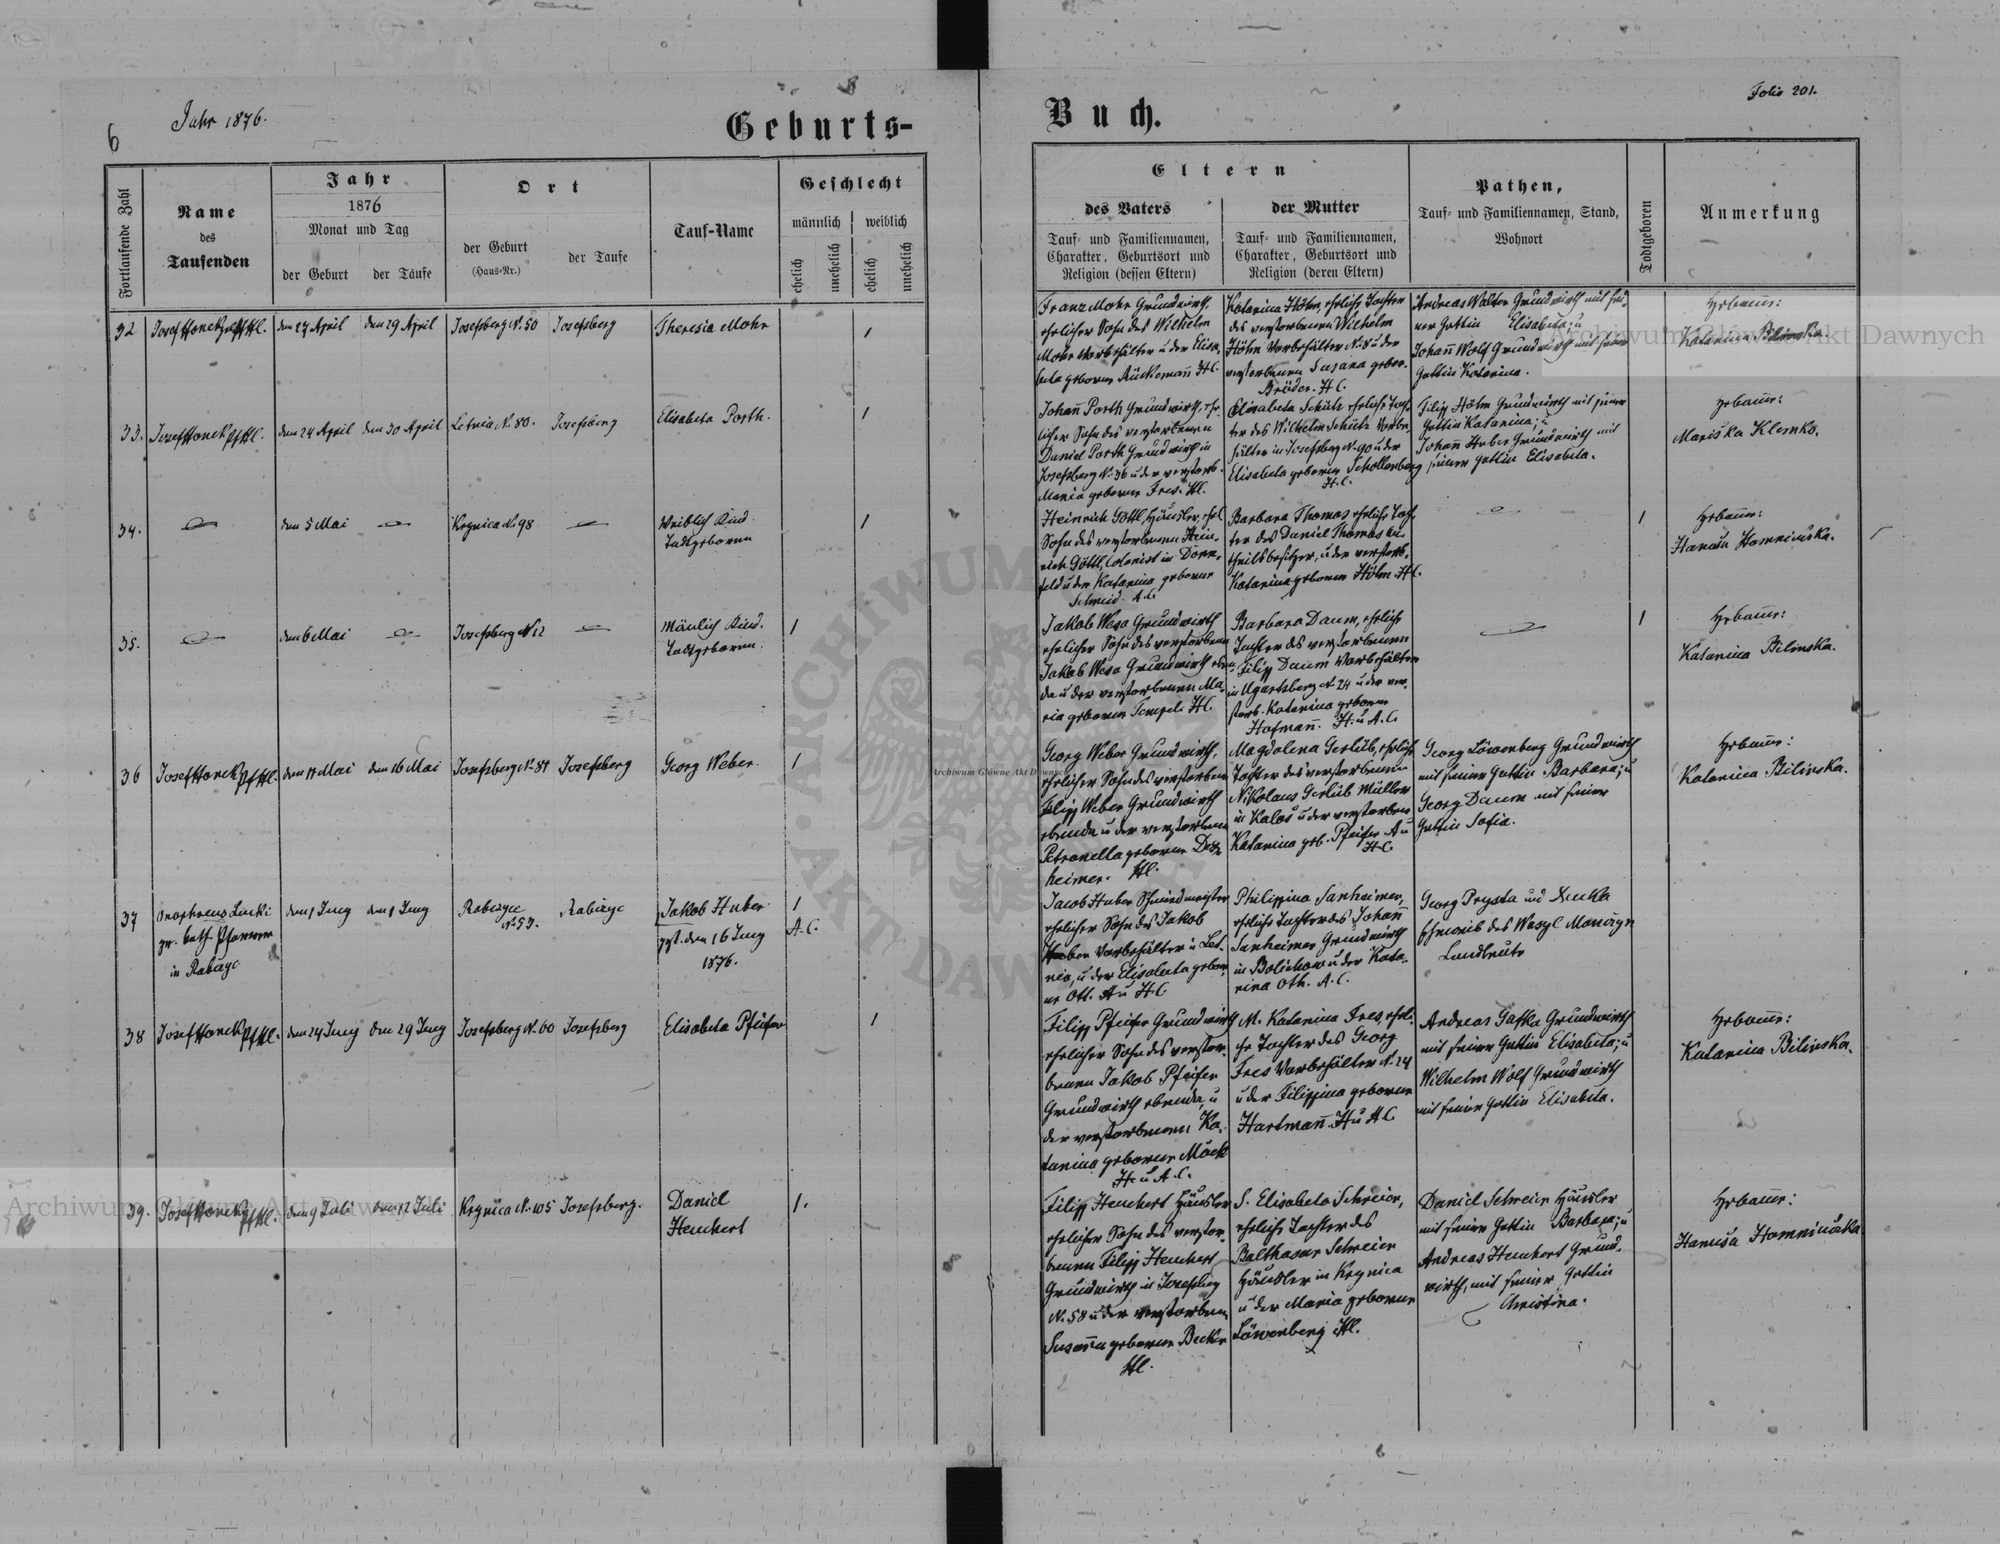 6
Jahr 1876.
Geburts-
Buch.
Folio 201.
Fortlaufende Zahl
Name
des
Taufenden
Jahr
1876
Monat und Tag
der Geburt
der Taufe
Ort
der Geburt
(Haus-Nr.)
der Taufe
Tauf-Name
Geschlecht
männlich
weiblich
ehelich
unehelich
ehelich
unehelich
Eltern
des Vaters
Tauf- und Familiennamen,
Charakter, Geburtsort und
Religion (dessen Eltern)
der Mutter
Tauf- und Familiennamen,
Charakter, Geburtsort und
Religion (deren Eltern)
Pathen,
Tauf- und Familiennamen, Stand,
Wohnort
Todtgeboren
Anmerkung
32
den 27 April
den 29 April
Josefsberg N. 50
Josefsberg
Theresia Mohr
1
Franz Mohr Grundwirth,
ehelicher Sohn des Wilhelm
Mohr Vorbehälter u der Elisa-
beta geborne H.C.
Katarina Höhn, ehliche Tochter
des verstorbenen Wilhelm
Höhn Vorbehälter N. 8 u der
verstorbenen Susana gebor.
Bröder. H.C.
Andreas Walter Grundwirth mit sei-
ner Gattin Elisabeta; u
Johañ Wolf Grundwirth mit seiner
Gattin Katarina.
Hebamme:
Katarina Bilinska
33.
den 24 April
den 30 April
Letnia N. 80.
Josefsberg
Elisabeta Porth.
1
Johañ Porth Grundwirth, eh-
licher Sohn des verstorbenen
Daniel Porth Grundwirth in
Josefsberg N. 36 u der verstorb.
Maria geborne Fres. H.C.
Elisabeta Schütz ehliche Toch-
ter des Wilhelm Schütz Vorbe-
hälter in Josefsberg N. 90 u der
Elisabeta geborne Schollenberg
H.C.
Filipp Höhn Grundwirth mit seiner
Gattin Katarina; u
Johañ Huber Grundwirth mit
seiner Gattin Elisabeta.
Hebamme:
Mariška Klemko.
34.
den 5 Mai
Krynica N. 98
Weiblich Kind
Todtgeboren
1
Heinrich Göttl, Häusler, ehel
Sohn des verstorbenen Hein-
rich Göttl, Colonist in Dorn-
feld u der Katarina geborne
Schmid. A.C.
Barbara Thomas ehliche Toch-
ter des Daniel Thomas An-
theilsbesitzer, u der verstorb.
Katarina geborne Höhn. H.C.
1
Hebamme:
Hanuša Homniuška.
35.
den 6 Mai
Josefsberg N. 12
Mänlich Kind.
Todtgeboren.
1
Jakob Wesa Grundwirth
ehelicher Sohn des verstorbenen
Jakob Wesa Grundwirth eben-
da u der verstorbenen Ma-
ria geborne Tempel. H.C.
Barbara Daum, ehliche
Tochter des verstorbenen
Filipp Daum Vorbehälter
in Ugartsberg N. 24 u der ver-
storb. Katarina geborne
Hofmañ. H. u A.C.
1
Hebamme:
Katarina Bilinska.
36
den 11 Mai
den 16 Mai
Josefsberg N. 81
Josefsberg
Georg Weber.
1
Georg Weber Grundwirth,
ehelicher Sohn des verstorbenen
Filipp Weber Grundwirth
ebenda u der verstorbenen
Petronella geborne
heimer. H.C.
Magdalena Gerlüb, ehliche
Tochter des verstorbenen
Nikolaus Gerlüb Müller
in u der verstorben
Katarina geb. Pfeifer. A u
H.C.
Georg Löwenberg Grundwirth
mit seiner Gattin Barbara; u
Georg Daum mit seiner
Gattin Sofia.
Hebamme:
Katarina Bilinska.
37
Pfarrer
in
den 1 Juny
den 1 Juny
N. 53.
Jakob Huber
den 16 Juny
1876.
1
A.C.
Jacob Huber Schmidmeister
ehelicher Sohn des Jakob
Huber Vorbehälter in Let-
nia, u der Elisabeta gebor-
ne Ott. A u H.C.
Philippina Sanheimer,
ehliche Tochter des Johañ
Sanheimer Grundwirth
in Bolichow u der Kata-
rina Oth. A.C.
Georg Prysta und
Eheweib des Wasyl
Landleute
38
den 24 Juny
den 29 Juny
Josefsberg N. 60
Josefsberg
Elisabeta Pfeifer
1
Filipp Pfeifer Grundwirth
ehelicher Sohn des verstor-
benen Jakob Pfeifer
Grundwirth ebenda, u
der verstorbenen Ka-
tarina geborne Möck
H. u A.C.
M. Katarina Fres, ehli-
che Tochter des Georg
Fres Vorbehälter N. 24
u der Filippina geborne
Hartmañ. H u A.C.
Andreas Gafka Grundwirth
mit seiner Gattin Elisabeta; u
Wilhelm Wolf Grundwirth
mit seiner Gattin Elisabeta.
Hebamme:
Katarina Bilinska.
39.
den 9 Juli
den 12 Juli
Krynica N. 105
Josefsberg.
Daniel
Heuchert
1.
Filipp Heuchert Häusler
ehelicher Sohn des verstor-
benen Filipp Heuchert
Grundwirth in Josefsberg
N. 58 u der verstorben
Susaña geborne Becker
H.C.
S. Elisabeta Schreier,
ehliche Tochter des
Balthasar Schreier
Häusler in Krynica
u der Maria geborne
Löwenberg H.C.
Daniel Schreier Häusler
mit seiner Gattin Barbara; u
Andreas Heuchert Grund-
wirth, mit seiner Gattin
Christina.
Hebamme:
Hanuša Homniuška
Archiwum Główne Akt Dawnych
Archiwum Główne Akt Dawnych
Archiwum Główne Akt Dawnych
ARCHIWUM
AKT DAW